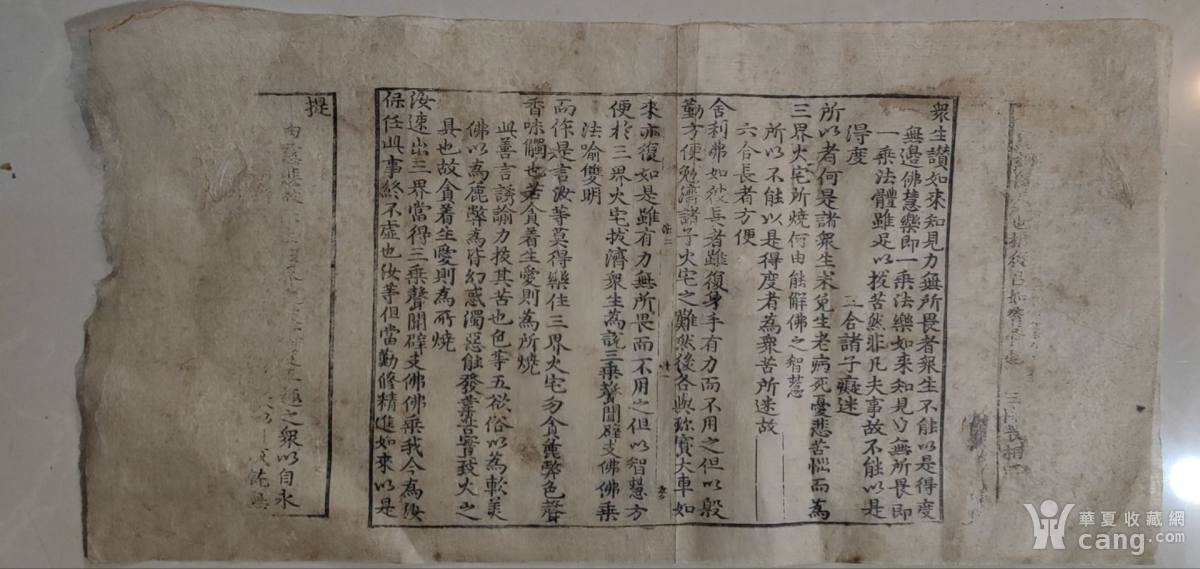 也 後 如
三
衆生讃如來知見力無所畏者衆生不能以是得度
無邊佛慧樂即一乘法樂如來知見力無所畏即
一乘法體雖足以拔苦然非凡夫事故不能以是
得度
五合諸子癡迷
所以者何是諸衆生未免生老病死憂悲苦惱而為
三界火宅所燒何由能解佛之智慧
所以不能以是得度者為衆苦所迷故
六合長者方便
舍利弗如彼長者雖復身手有力而不用之但以殷
勤方便勉濟諸子火宅之難然後各與珍寳大車如
來亦復如是雖有力無所畏而不用之但以智慧方
便於三界火宅拔濟衆生為說三乘聲聞辟支佛佛乘
法喻雙明
而作是言汝等莫得樂住三界火宅勿貪麁弊色聲
香味觸也若貪著生愛則為所燒
此善言誘諭力拔其苦也色等五欲俗以為軟美
佛以為麁弊為皆幻惑濁惡能發業苦實致火之
具也故貪着生愛則為所燒
汝速出三界當得三乘聲聞辟支佛佛乘我今為汝
保任此事終不虛也汝等但當勤修精進如來以是
提
之衆以自永
華夏收藏網
cang.com